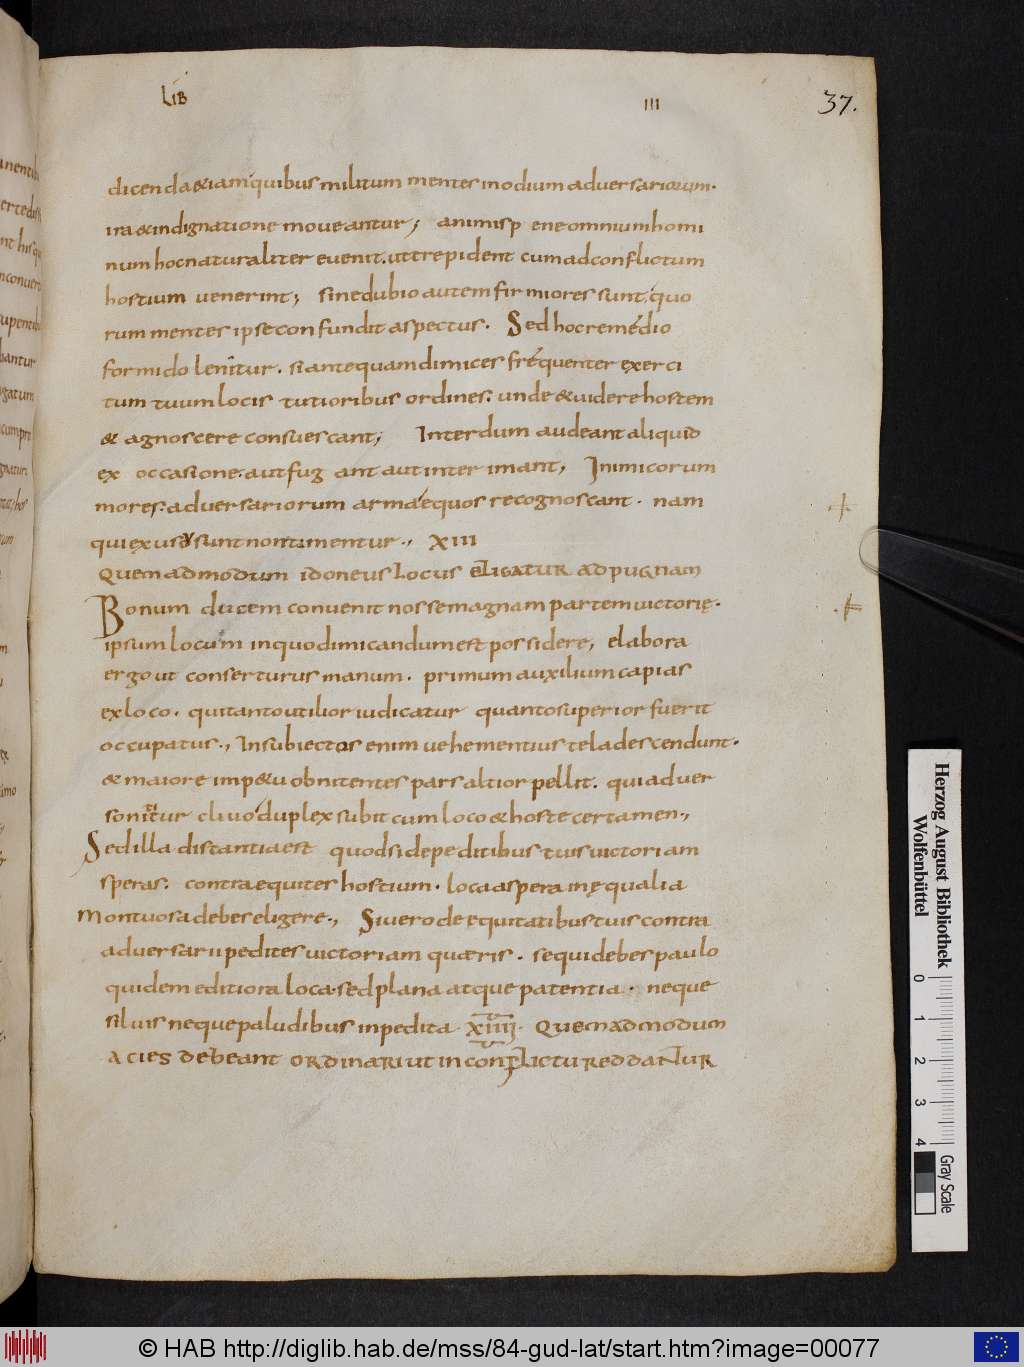 LIB III 37.
dicenda &iam quibus militum mentes inodium adversariorum.
ira & indignatione moveantur; animis p ene omnium homi
num hoc naturaliter evenit. ut trepident cum ad conflictum
hostium venerint; sine dubio autem firmiores sunt quo
rum mentes ipse confundit aspectus. Sed hoc remedio
formido lenitur. si antequam dimices frequenter exerci
tum tuum locis tutioribus ordines: unde & videre hostem
& agnoscere consuescant; Interdum audeant aliquid
ex occasione. aut fug ant aut interimant, Inimicorum
mores: adversariorum arma equos recognoscant. nam
que ex usu sunt non timentur., XIII
Quemadmodum idoneus locus eligatur ad pugnam
Bonum ducem convenit nosse magnam partem victorię.
ipsum locum in quo dimicandum est possidere, elabora
ergo ut conserturus manum. primum auxilium capias
ex loco. qui tanto utilior iudicatur quanto superior fuerit
occupatus., In subiectos enim vehementius tela descendunt.
& maiore imp&u obnitentes pars altior pellit. qui adver
so nititur clivo duplex subit cum loco & hoste certamen.,
Sed illa distantia est quod si de peditibus tuis victoriam
speras: contra equites hostium. loca aspera inęqualia
montuosa debes eligere., Si vero de equitatibus tuis contra
adversarii pedites victoriam quaeris. sequi debes paulo
quidem editiora loca. sed plana atque patentia. neque
silvis neque paludibus inpedita XIIII. Quemadmodum
acies debeant ordinari ut in conflictu reddantur
Herzog August Bibliothek
Wolfenbüttel
0 1 2 3 4
Gray Scale
© HAB http://diglib.hab.de/mss/84-gud-lat/start.htm?image=00077